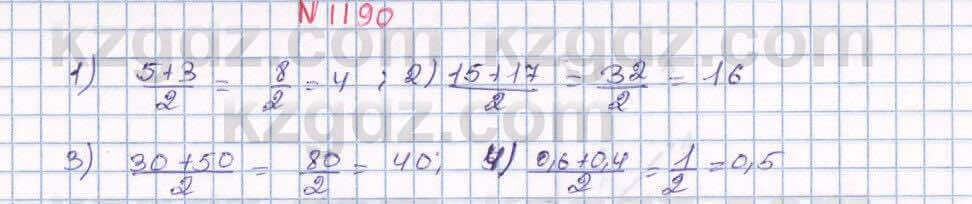 N 1190
kzgdz.com kzgdz.com
1) (5+3)/2 = 8/2 = 4 ; 2) (15+17)/2 = 32/2 = 16
kzgdz.com
3) (30+50)/2 = 80/2 = 40; 4) (0,6+0,4)/2 = 1/2 = 0,5